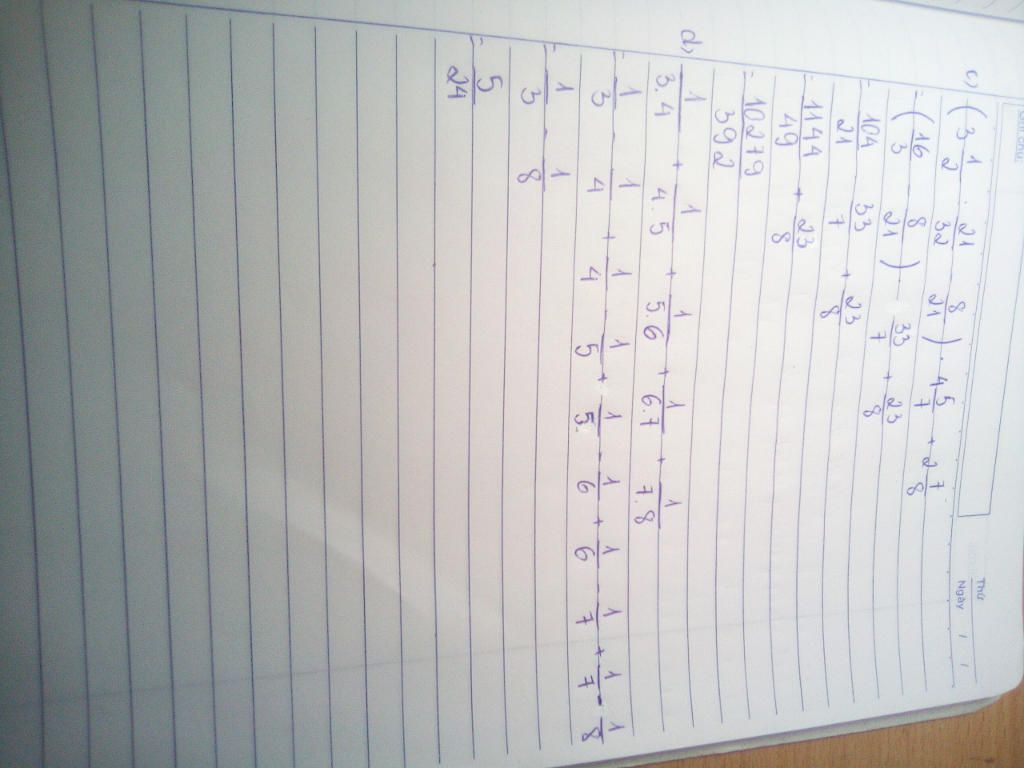 Thứ
Ngày / /
c) (3 1/2 . 21/32 8/21) . 4 5/7 + 2 7/8
= (16/3 - 8/21) . 33/7 + 23/8
= 104/21 . 33/7 + 23/8
= 1144/49 + 23/8
= 10279/392
d) 1/3.4 + 1/4.5 + 1/5.6 + 1/6.7 + 1/7.8
= 1/3 - 1/4 + 1/4 - 1/5 + 1/5 - 1/6 + 1/6 - 1/7 + 1/7 - 1/8
= 1/3 - 1/8
= 5/24